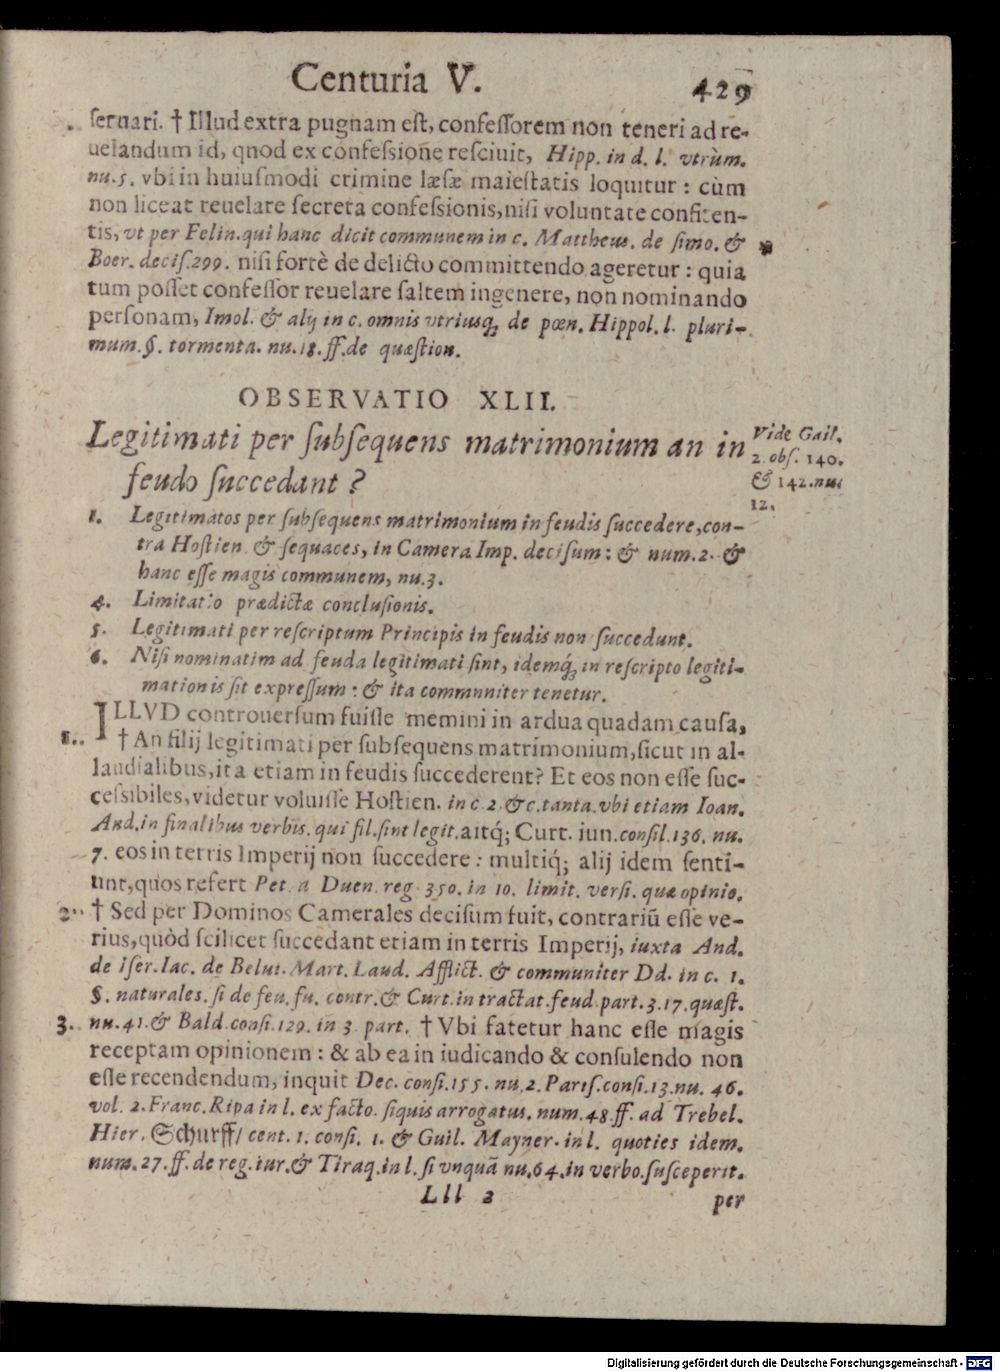 Centuria V. 429
ſeruari. † Illud extra pugnam eſt, confeſſorem non teneri ad re-
uelandum id, qnod ex confeſsione reſciuit, Hipp. in d. l. vtrùm.
nu. 5. vbi in huiuſmodi crimine læſæ maieſtatis loquitur: cùm
non liceat reuelare ſecreta confeſsionis, niſi voluntate confiten-
tis, vt per Felin. qui hanc dicit communem in c. Mattheus. de ſimo. &
Boer. deciſ. 299. niſi fortè de delicto committendo ageretur: quia
tum poſſet confeſſor reuelare ſaltem ingenere, non nominando
perſonam, Imol. & alij in c. omnis vtriusq; de pœn. Hippol. l. pluri-
mum. §. tormenta. nu. 18. ff. de quæſtion.
OBSERVATIO XLII.
Legitimati per ſubſequens matrimonium an in
feudo ſuccedant?
Vide Gail.
2. obſ. 140.
& 142. nu.
12.
1. Legitimatos per ſubſequens matrimonium in feudis ſuccedere, con-
tra Hoſtien. & ſequaces, in Camera Imp. deciſum: & num. 2. &
hanc eſſe magis communem, nu. 3.
4. Limitatio prædictæ concluſionis.
5. Legitimati per reſcriptum Principis in feudis non ſuccedunt.
6. Niſi nominatim ad feuda legitimati ſint, idemq́; in reſcripto legiti-
mationis ſit expreſſum: & ita communiter tenetur.
ILLVD controuerſum fuiſſe memini in ardua quadam cauſa,
1. † An filij legitimati per ſubſequens matrimonium, ſicut in al-
laudialibus, ita etiam in feudis ſuccederent? Et eos non eſſe ſuc-
ceſsibiles, videtur voluiſſe Hoſtien. in c. 2. & c. tanta. vbi etiam Ioan.
And. in finalibus verbis. qui fil. ſint legit. aitq́; Curt. iun. conſil. 136. nu.
7. eos in terris Imperij non ſuccedere: multiq́; alij idem ſenti-
unt, quos refert Pet. a Duen. reg. 350. in 10. limit. verſi. quæ opinio.
2. † Sed per Dominos Camerales deciſum fuit, contrariũ eſſe ve-
rius, quòd ſcilicet ſuccedant etiam in terris Imperij, iuxta And.
de Iſer. Iac. de Belui. Mart. Laud. Afflict. & communiter Dd. in c. 1.
§. naturales. ſi de feu. fu. contr. & Curt. in tractat. feud. part. 3. 17. quæſt.
3. nu. 41. & Bald. conſi. 129. in 3. part. † Vbi fatetur hanc eſſe magis
receptam opinionem: & ab ea in iudicando & conſulendo non
eſſe recendendum, inquit Dec. conſi. 155. nu. 2. Pariſ. conſi. 13. nu. 46.
vol. 2. Franc. Ripa in l. ex facto. ſiquis arrogatus. num. 48. ff. ad Trebel.
Hier. Schurff/ cent. 1. conſi. 1. & Guil. Mayner. in l. quoties idem.
num. 27. ff. de reg. iur. & Tiraq. in l. ſi vnquã nu. 64. in verbo. ſuſceperit.
Lll 3 per
Digitalisierung gefördert durch die Deutsche Forschungsgemeinschaft - DFG